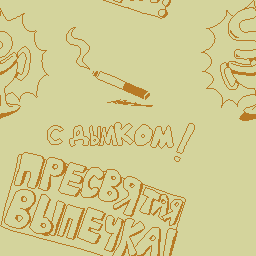 С ДЫМКОМ!
ПРЕСВЯТАЯ
ВЫПЕЧКА!